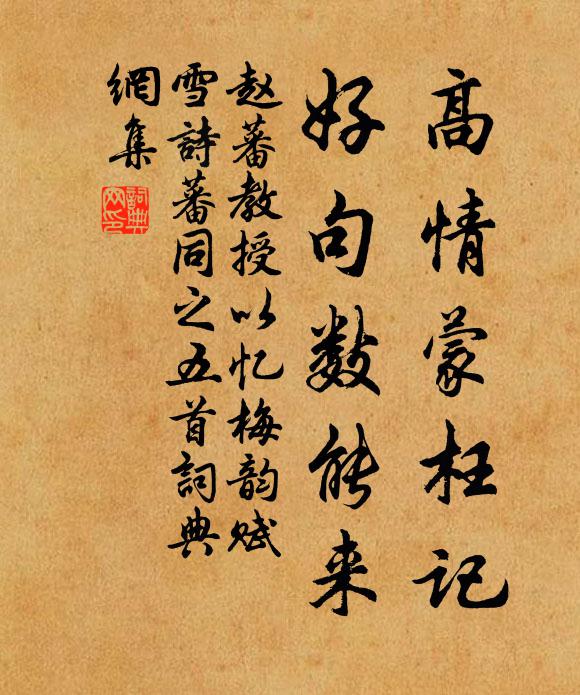 高情蒙枉记
好句数能来
赵蕃教授以忆梅韵赋
雪詩蕃同之五首詞典
網集
詞典
网印